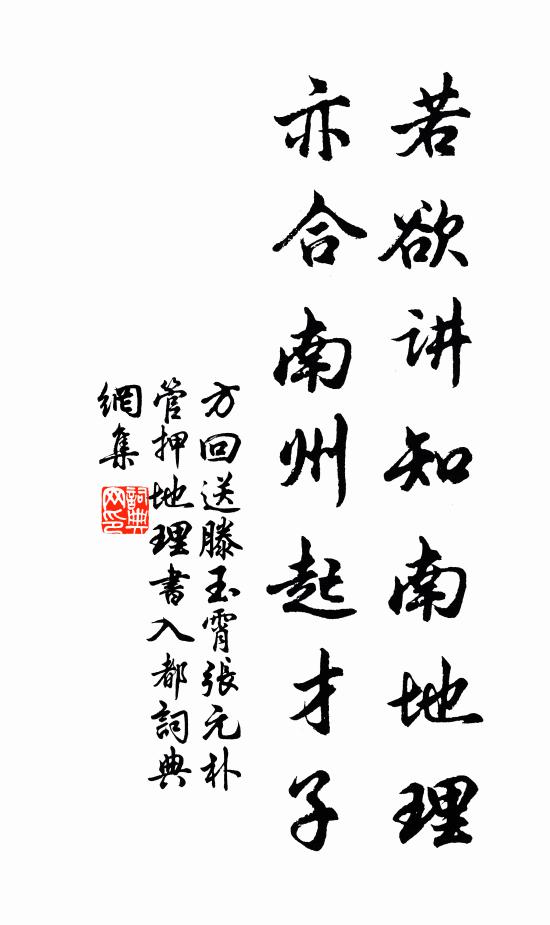 若欲讲知南地理
亦合南州起才子
方回送滕玉霄张元朴
管押地理書入都詞典
網集
詞典网印